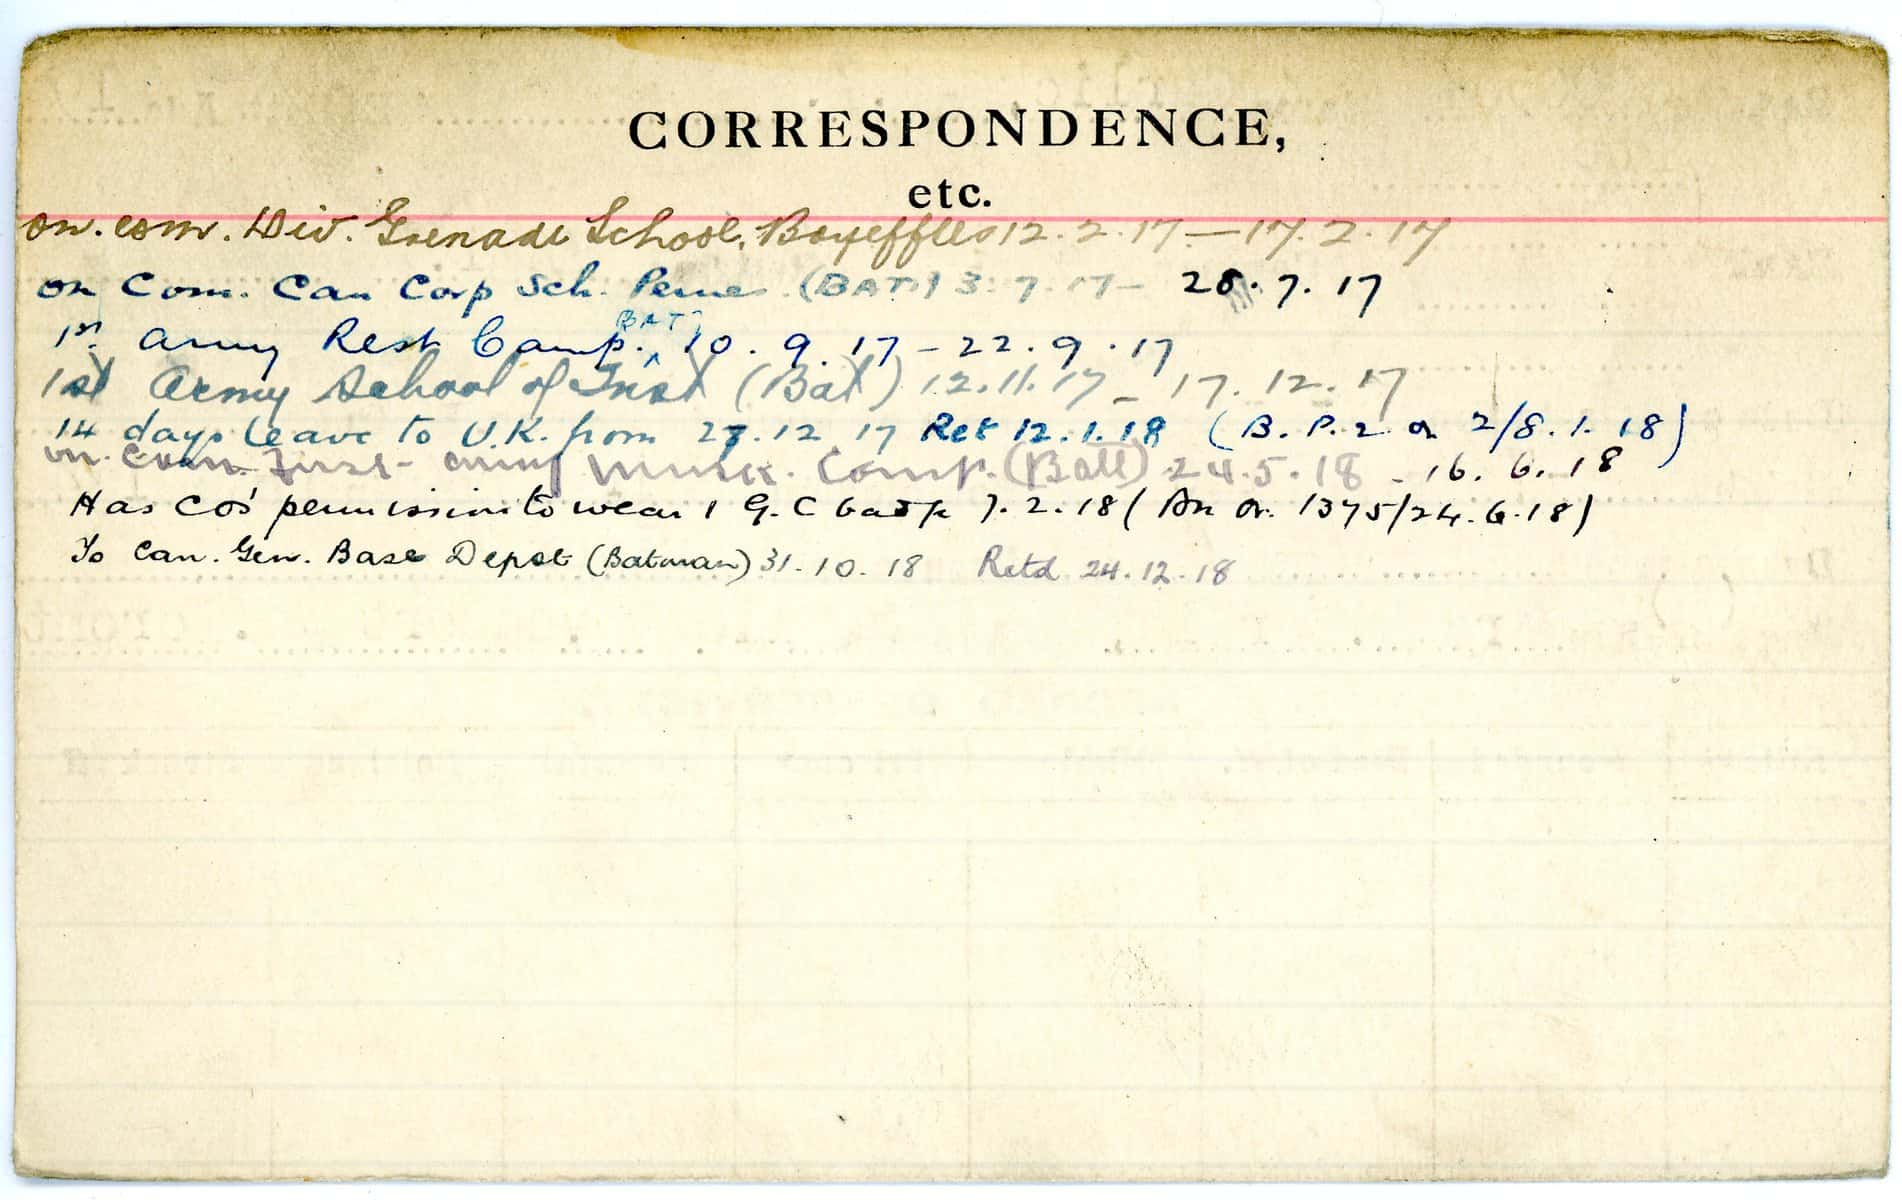 CORRESPONDENCE,
etc.
on. com. Div. Grenade School, Boyeffles 12.2.17 — 17.2.17
on Com. Can Corp Sch. Pernes (BAT.) 3.7.17 - 28.7.17
1st. Army Rest Camp. (BAT) 10.9.17 - 22.9.17
1st Army School of Inst (Bat) 12.11.17 - 17.12.17
14 days leave to U.K. from 27.12 17 Ret 12.1.18 (B.P.2 on 2/8.1.18)
on. Com. First Army Musk. Camp. (Batt) 24.5.18 - 16.6.18
Has CO's permission to wear 1 G.C 7.2.18 ( 1375/24.6.18)
To Can. Gen. Base Depot (Batman) 31.10.18 Retd 24.12.18